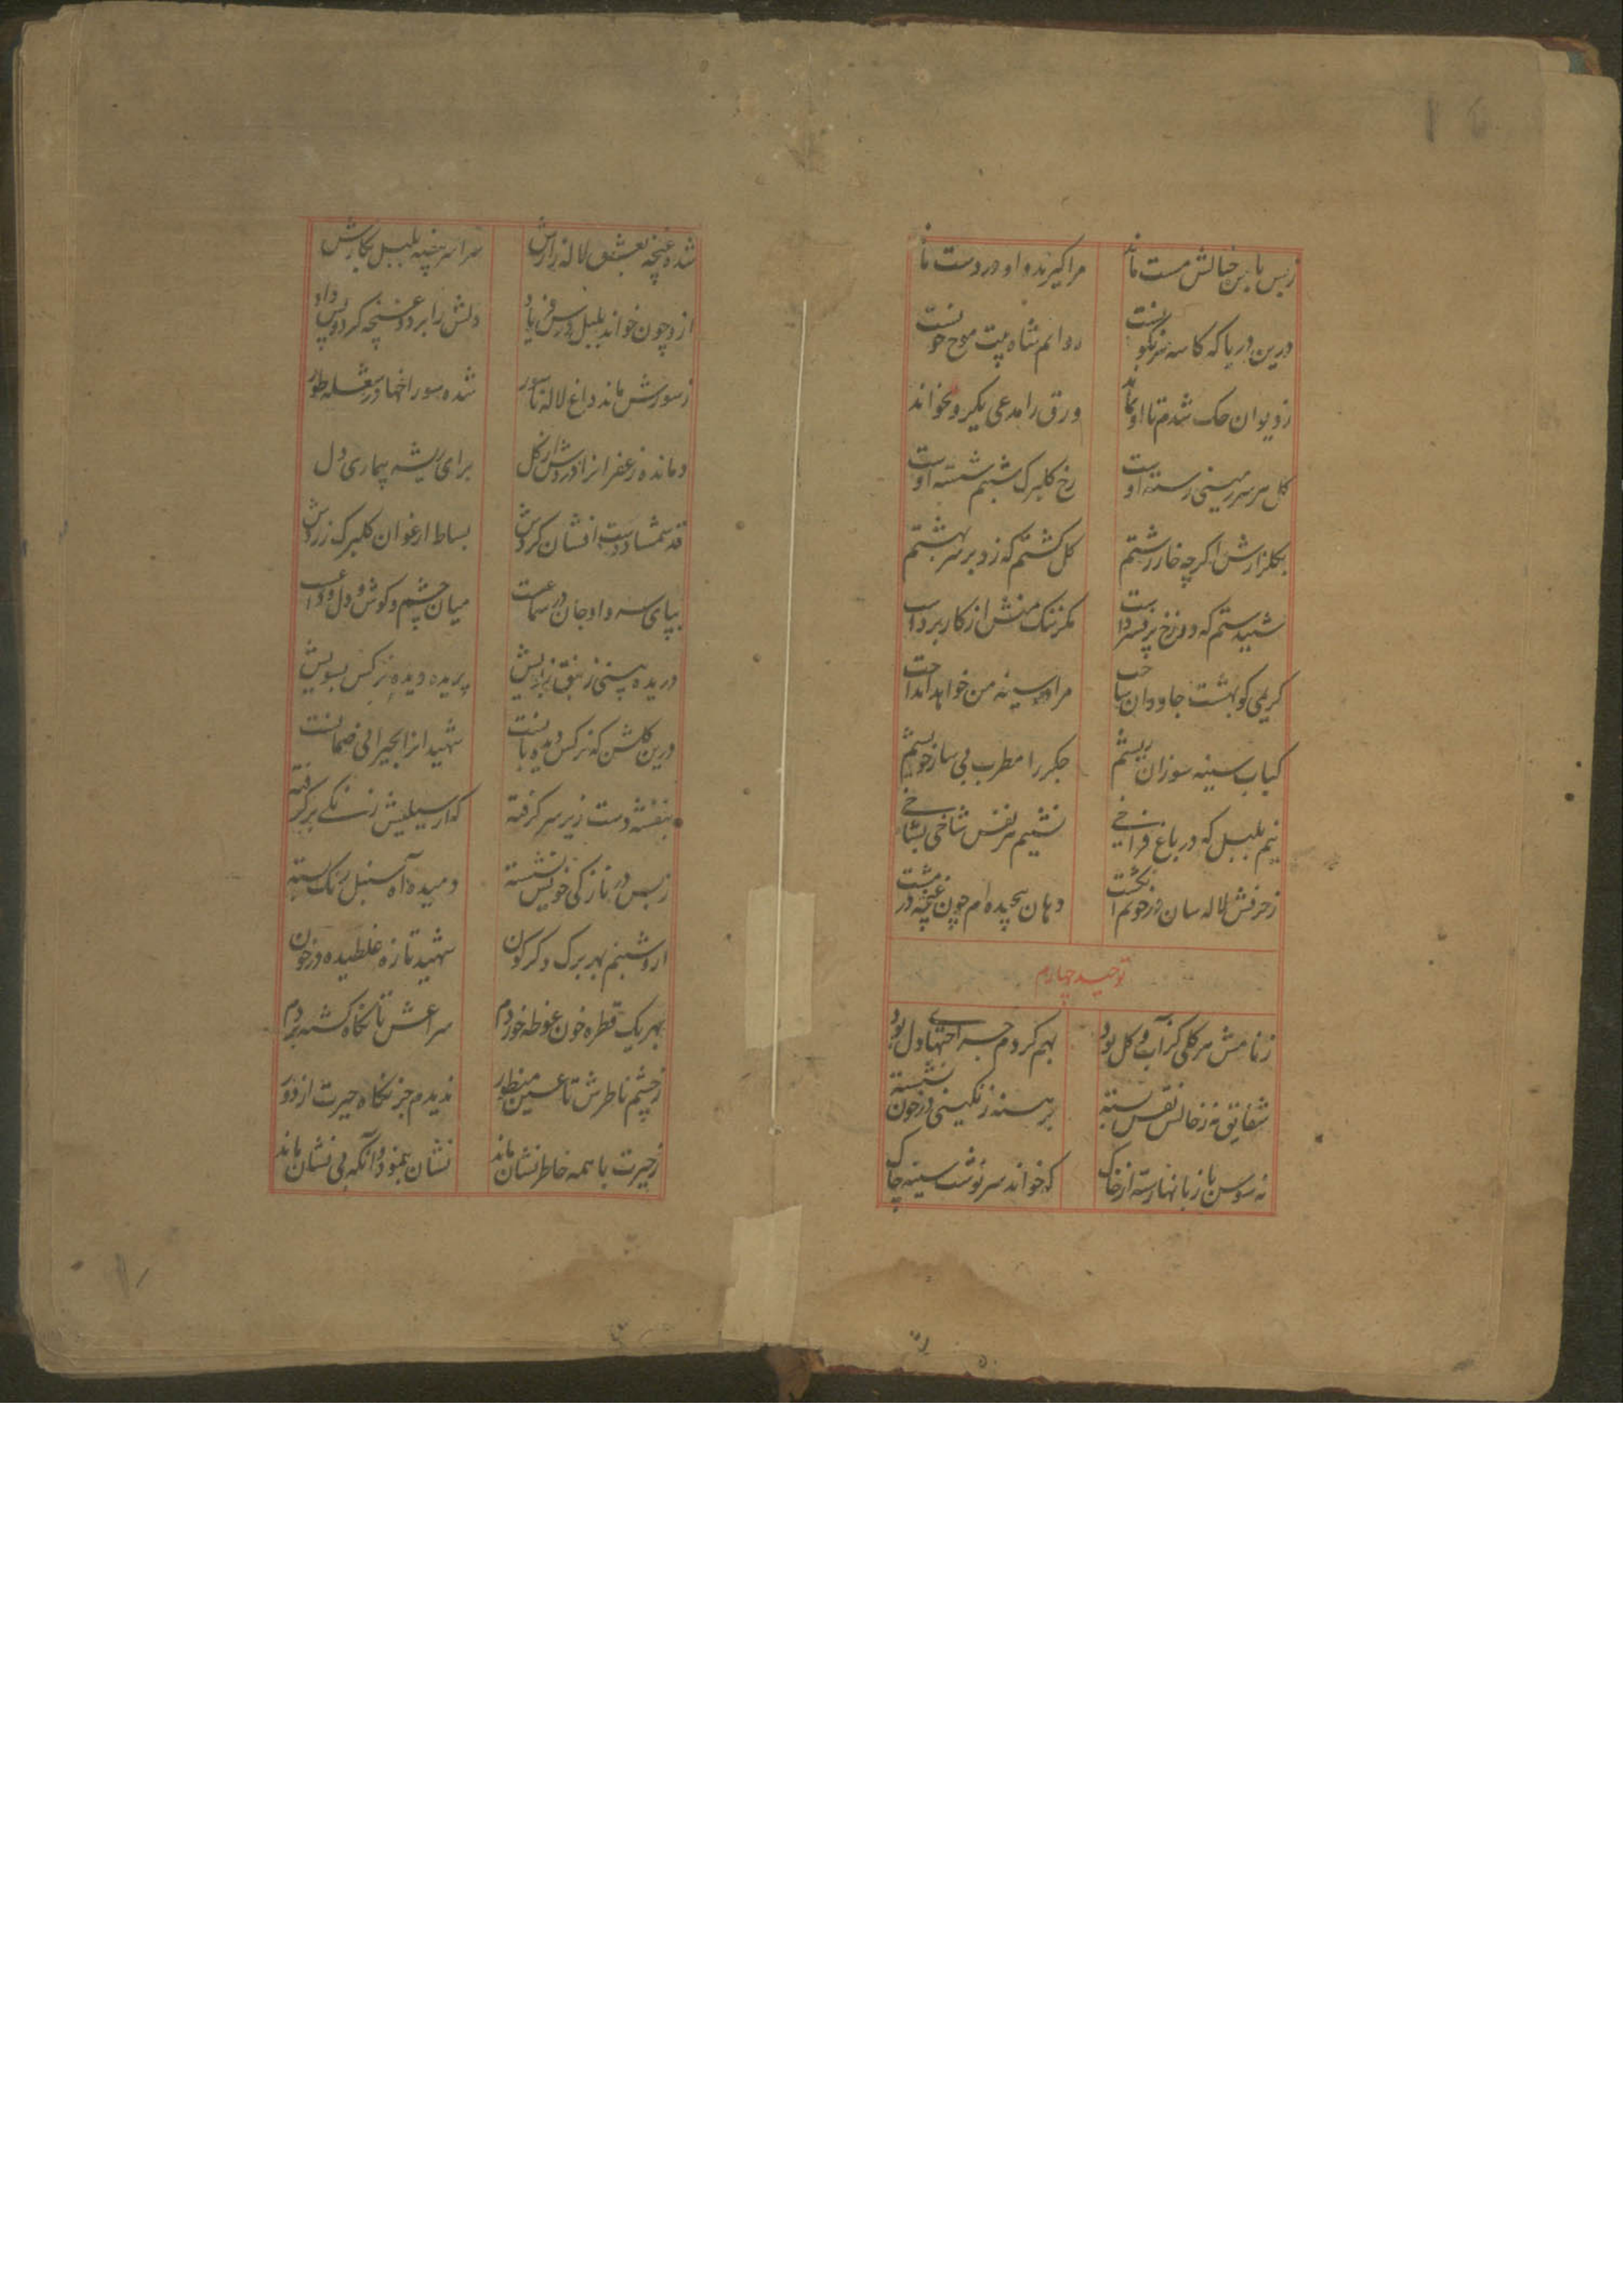 زبس با من خیالش مست ماند مرا گیرند و او در دست ماند
درین دریا که کاسه سرنگونست روانم شاه بیت موج خونست
ز دیوان حک شدم تا او بماند ورق را مدعی یکرو نخواند
کل هر سرزمینی رسته اوست رخ کلبرک شبنم شسته اوست
بکلزارش اکرچه خار زشتم کل کشتم که زد بر سر بهشتم
شنیدستم که دوزخ پر فسرداست مکر ننک منش از کار برداست
کریمی کو بهشت جاودان ساخت مرا در سینه من خواهد انداخت
کباب سینه سوزان ریشم جکر را مطرب بی ساز خویشم
نیم بلبل که در باغ فراخی نشینم هر نفس شاخی بشاخی
ز حرفش لاله سان در خونم انکشت دهان پیچیده ام چون غنچه در مشت
توحید چهارم
ز نامش هر کلی کز آب و کل بود بهم کردم جراحتهای دل بود
شقایق نه ز خالش نقس بسته برهنه زنکیی در خون نشسته
نه سوسن با زبانها رسته از خاک که خواند سرنوشت سینه چاک
شده غنچه بعشق لاله زارش سراسر پنبه بلبل بکارش
ازو چون خواند بلبل درس فریاد دلش را برد و غنچه کرد و پس داد
ز سوزش ماند داغ لاله ناسور شده سوراخها در شعله طور
دمانده زعفرانزا در دش از کل برای ریشه بیماری دل
قد شمشاد دست افشان کردش بساط ارغوان کلبرک زردش
بپای سرو داد جان در سماعست میان چشم و کوش و دل وداعست
دریده بینی زنبق ز بویش پریده دیده نرکس بسویش
درین کلشن که نرکس دیده بانست شهیدانرا بحیرانی ضمانست
بنفشه دست زیر سر کرفته که از سیلیش رنکی بر کرفته
زبس در نازکی خویش نشسته دمیده آه سنبل رنک بسته
ازو شبنم بهر برک دکرکون شهید تازه غلطیده در خون
بهر یک قطره خون غوطه خوردم سراغش تا نکاه کشته بردم
ز چشم ناظرش تا عین منظور ندیدم جز نکاه حیرت از دور
ز حیرت با همه خاطرنشان ماند نشان بنمود و آنکه بی نشان ماند